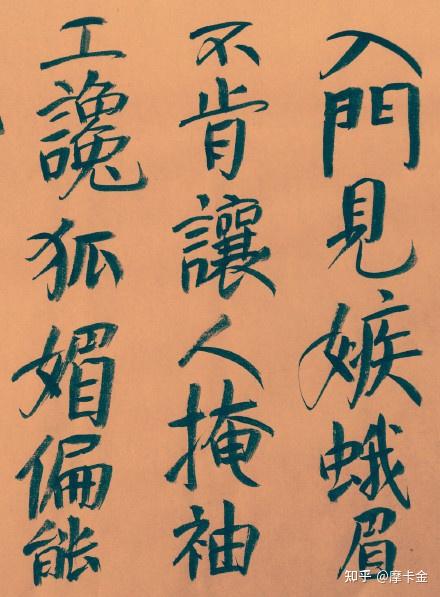 入門見嫉蛾眉
不肯讓人掩袖
工讒狐媚偏能
知乎 @摩卡金